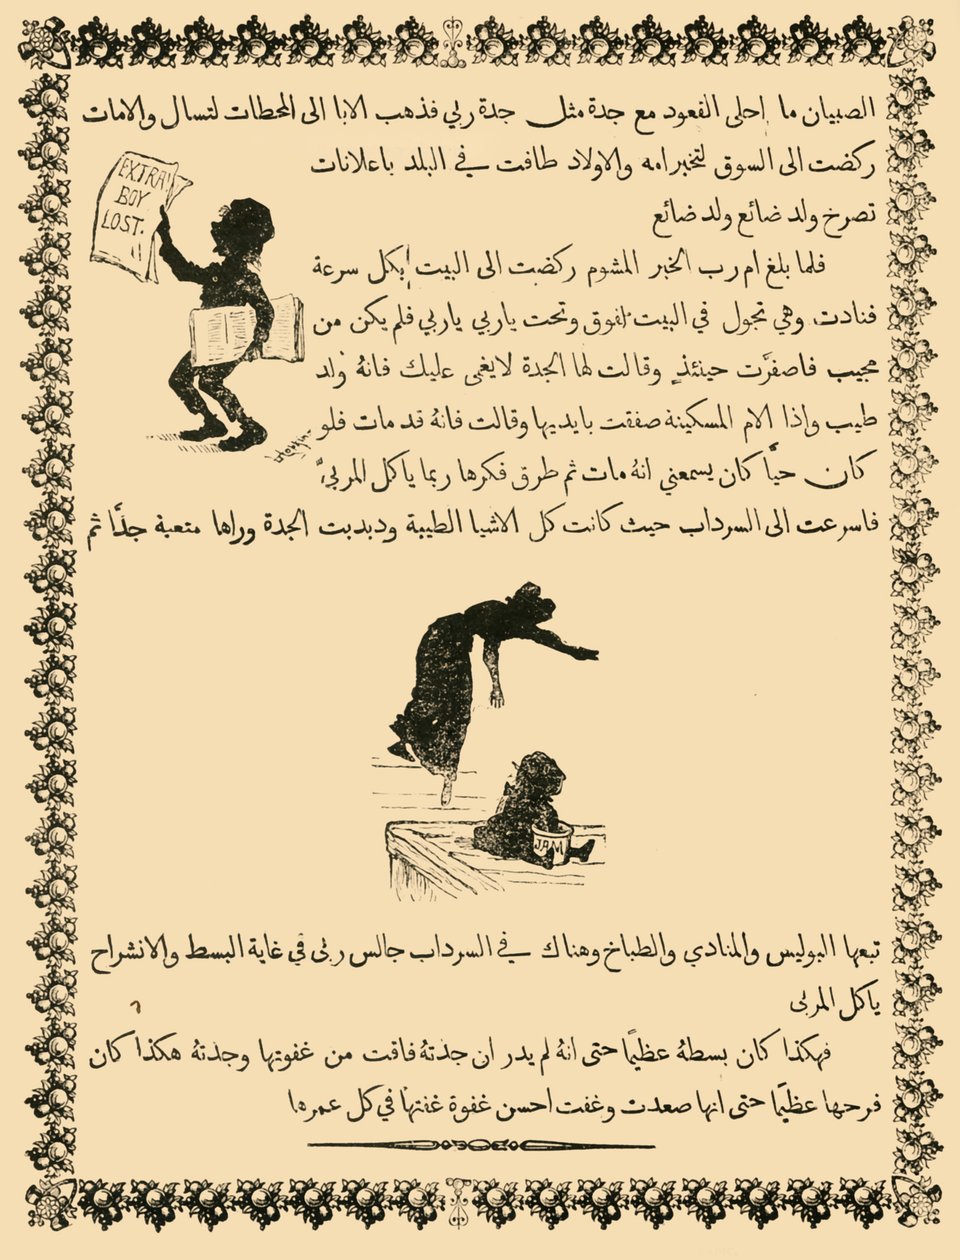 الصبيان ما احلى القعود مع جدة مثل جدة ربي فذهب الابا الى المحطات لتسال والامات
ركضت الى السوق لتخبر امه والاولاد طافت في البلد باعلانات
تصرخ ولد ضائع ولد ضائع
EXTRA!
BOY
LOST.
فلما بلغ ام رب الخبر المشوم ركضت الى البيت بكل سرعة
فنادت وهي تجول في البيت لفوق وتحت ياربي ياربي فلم يكن من
مجيب فاصفرَّت حينئذٍ وقالت لها الجدة لا يغمى عليك فانهُ ولد
طيب واذا الام المسكينة صفقت بايديها وقالت فانهُ قد مات فلو
كان حيًّا كان يسمعني انهُ مات ثم طرق فكرها ربما ياكل المربىَّ
فاسرعت الى السرداب حيث كانت كل الاشيا الطيبة ودبدبت الجدة وراها متعبة جدًّا ثم
JAM
تبعها البوليس والمنادي والطباخ وهناك في السرداب جالس ربى في غاية البسط والانشراح
ياكل المربى
فهكذا كان بسطهُ عظيمًا حتى انهُ لم يدر ان جدتهُ فاقت من غفوتها وجدتهُ هكذا كان
فرحها عظيمًا حتى انها صعدت وغفت احسن غفوة غفتها في كل عمرها